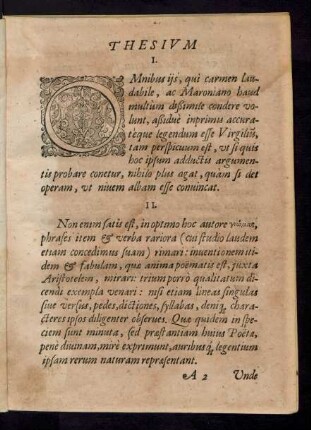 THESIVM
I.
OMnibus ijs, qui carmen lau-
dabile, ac Maroniano haud
multùm dißimile condere vo-
lunt, aßiduè inprimis accura-
teque legendum esse Virgiliũ,
tam perspicuum est, vt si quis
hoc ipsum adductis argumen-
tis probare conetur, nihilo plus agat, quàm si det
operam, vt niuem albam esse conuincat.
II.
Non enim satis est, in optimo hoc autore
phrases item & verba rariora (cui studio laudem
etiam concedimus suam) rimari: inuentionem iti-
dem & fabulam, quæ anima poëmatis est, juxta
Aristotelem, mirari: trium porrò qualitatum di-
cendi exempla venari: nisi etiam lineas singulas
siue versus, pedes, dictiones, syllabas, deniq, chara-
cteres ipsos diligenter obserues. Quæ quidem in spe-
ciem sunt minuta, sed præstantiam huius Poëtæ,
penè diuinam, mirè exprimunt, auribusq legentium
ipsam rerum naturam repræsentant.
A 2 Vnde